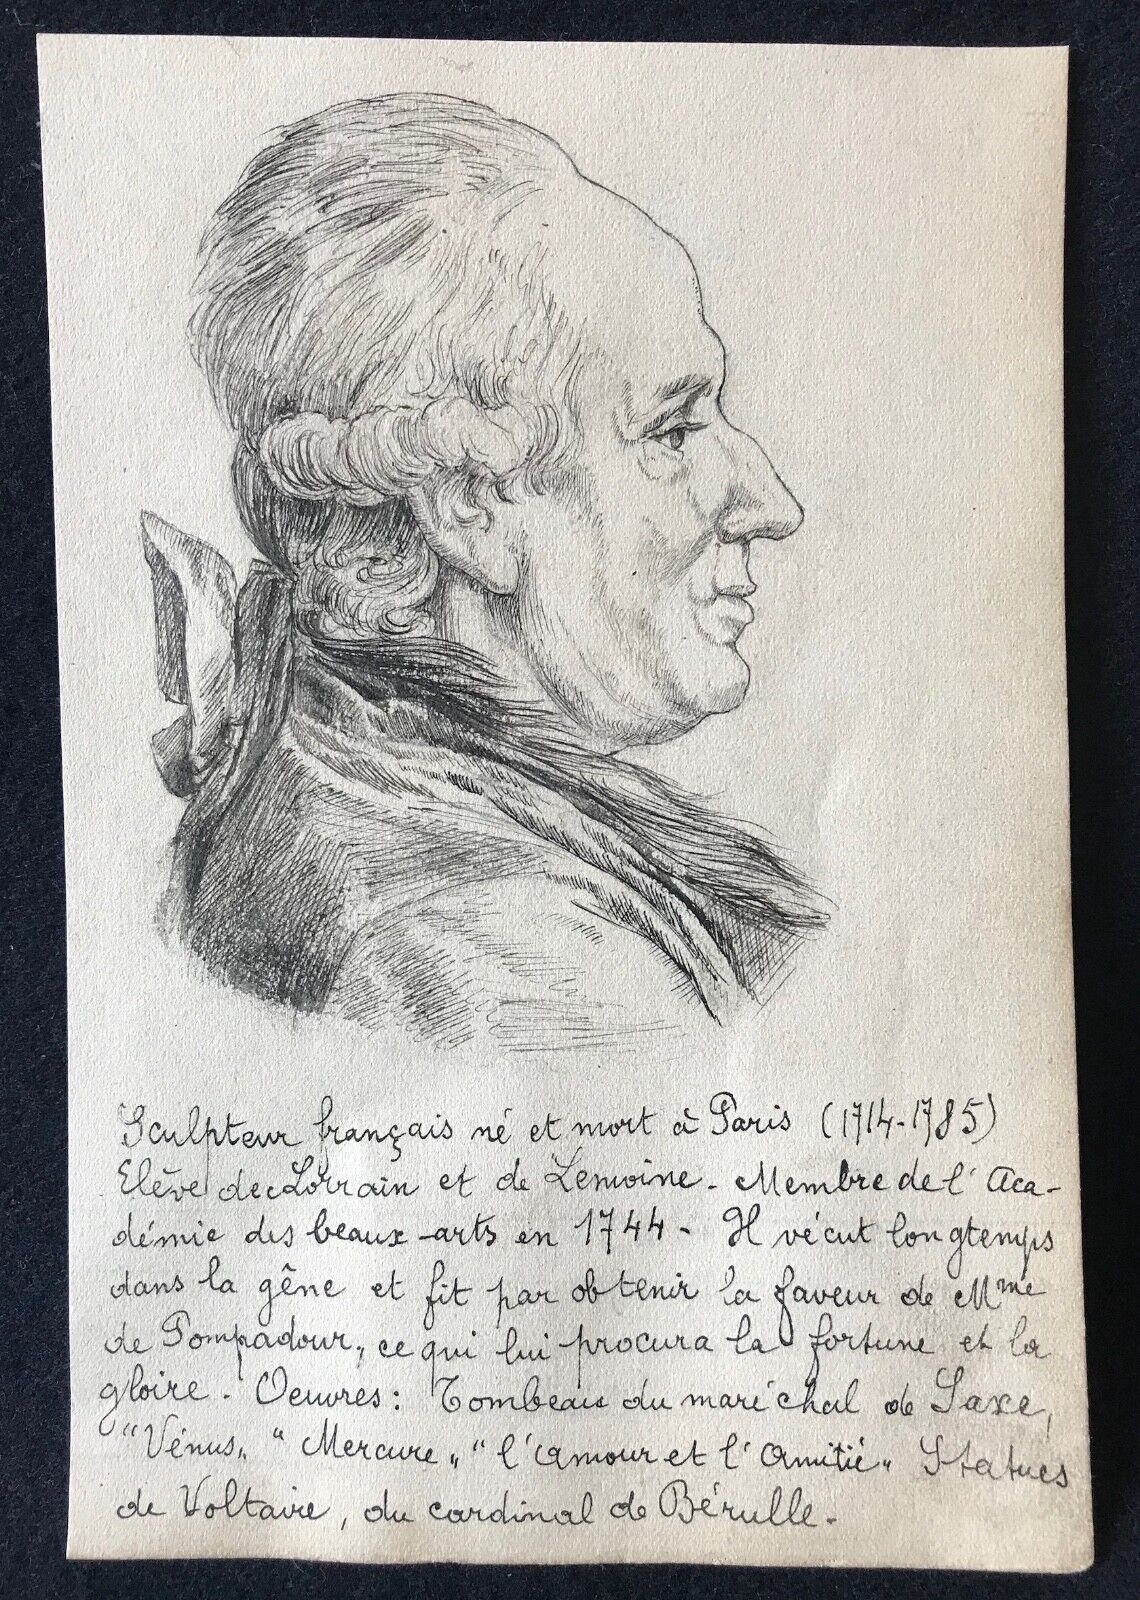 Sculpteur français né et mort à Paris (1714-1785)
Elève de Lorrain et de Lemoine. Membre de l'Aca-
démie des beaux-arts en 1744. Il vécut longtemps
dans la gêne et fit par obtenir la faveur de Mme
de Pompadour, ce qui lui procura la fortune et la
gloire. Oeuvres: Tombeau du maréchal de Saxe,
"Vénus" "Mercure" "l'amour et l'amitié" Statues
de Voltaire, du cardinal de Bérulle.